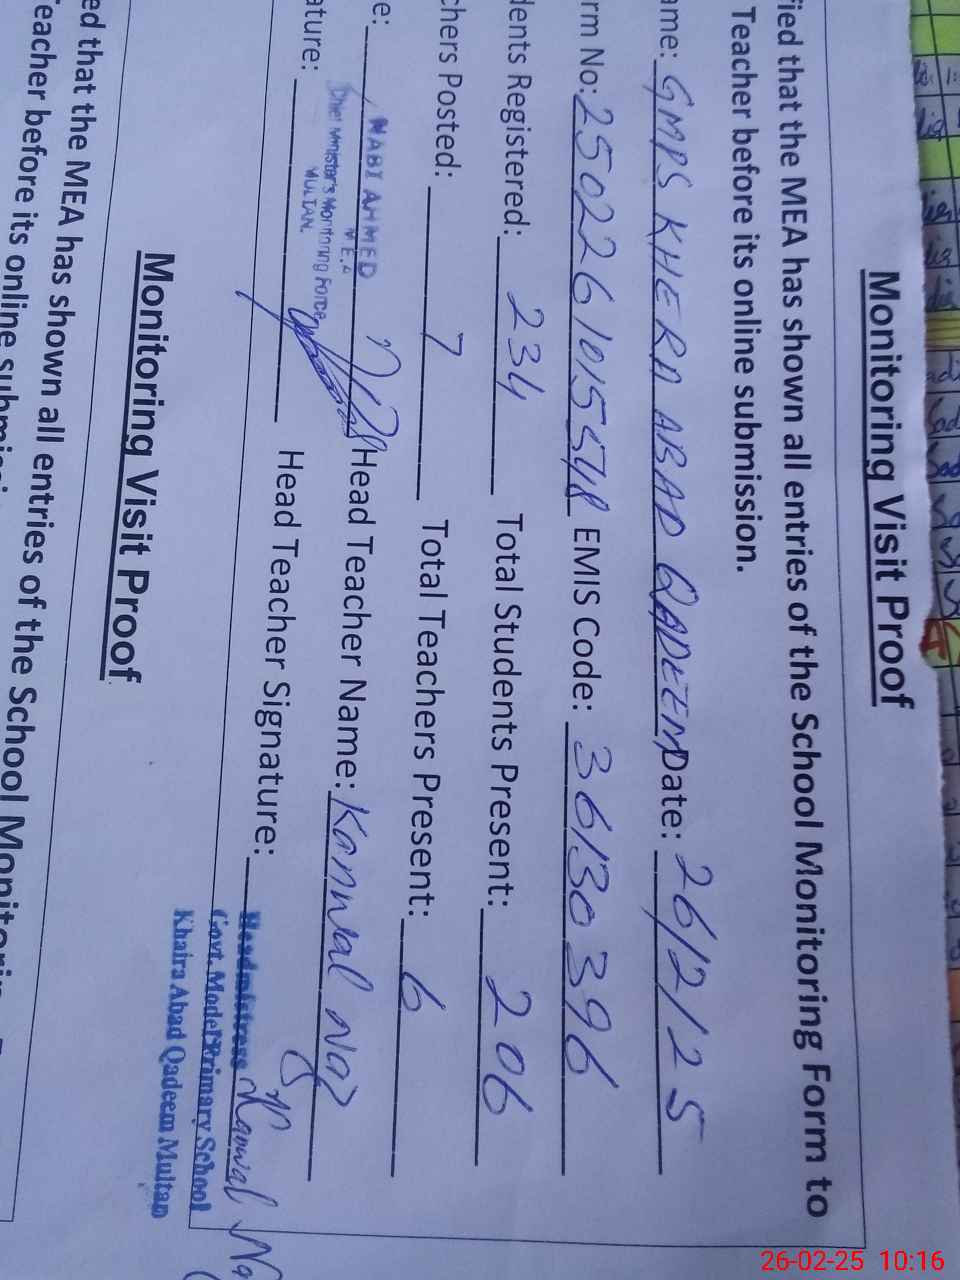 Monitoring Visit Proof
fied that the MEA has shown all entries of the School Monitoring Form to
Teacher before its online submission.
ame: GMPS KHERA ABAD QADEEM Date: 26/2/25
rm No: 2502261015548 EMIS Code: 36130396
dents Registered: 234 Total Students Present: 206
chers Posted: 7 Total Teachers Present: 6
e: NABI AHMED Head Teacher Name: Kanwal Naz
M.E.A
Chief Minister's Monitoring Force
MULTAN.
ature: Head Teacher Signature: Kanwal Na
Headmistress
Govt. Model Primary School
Khaira Abad Qadeem Multan
Monitoring Visit Proof
ed that the MEA has shown all entries of the School Monitorin
Teacher before its online submissi
26-02-25 10:16